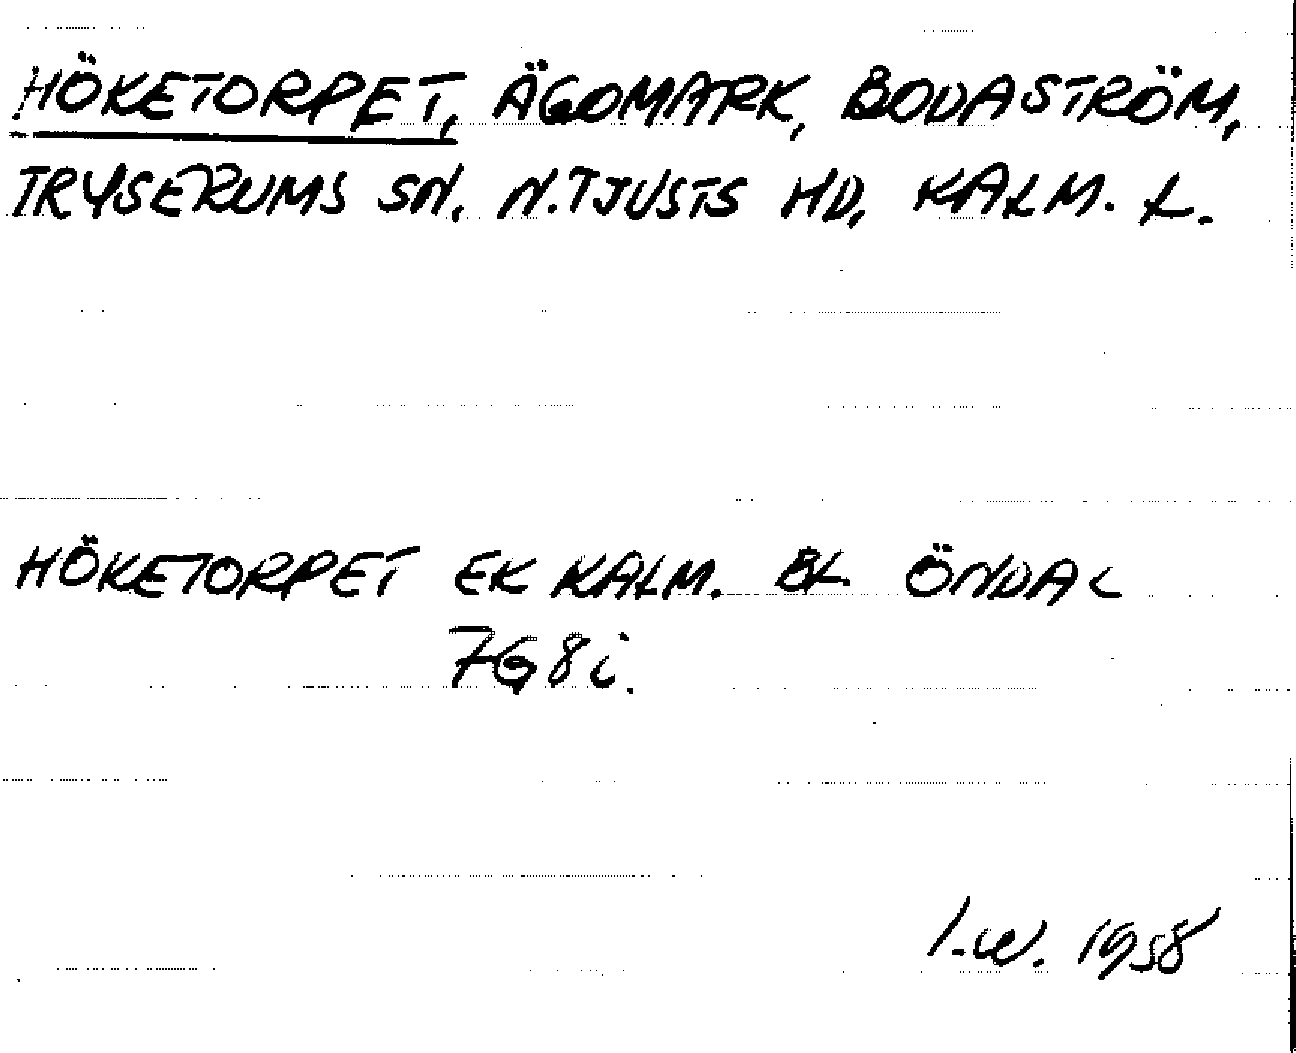 HÖKETORPET, ÄGOMARK, BODASTRÖM,
TRYSERUMS SN. N.TJUSTS HD, KALM. L.
HÖKETORPET EK KALM. BL ÖNDAL
7G8i.
I.W. 1958